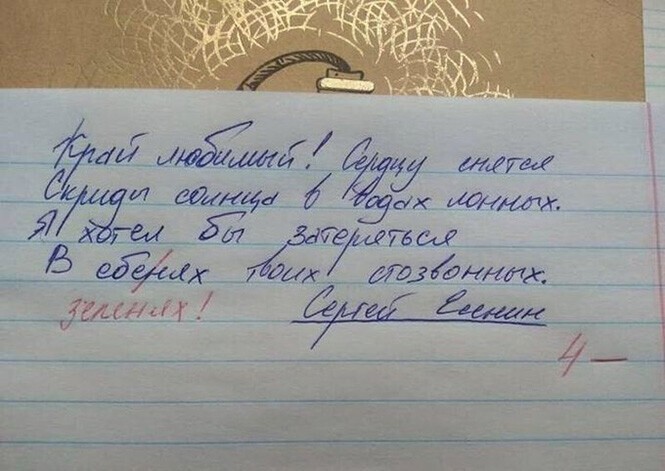 Край любимый! Сердцу снятся
Скирды солнца в водах лонных.
Я хотел бы затеряться
В ебенях твоих стозвонных.
зеленях!
Сергей Есенин
4 —